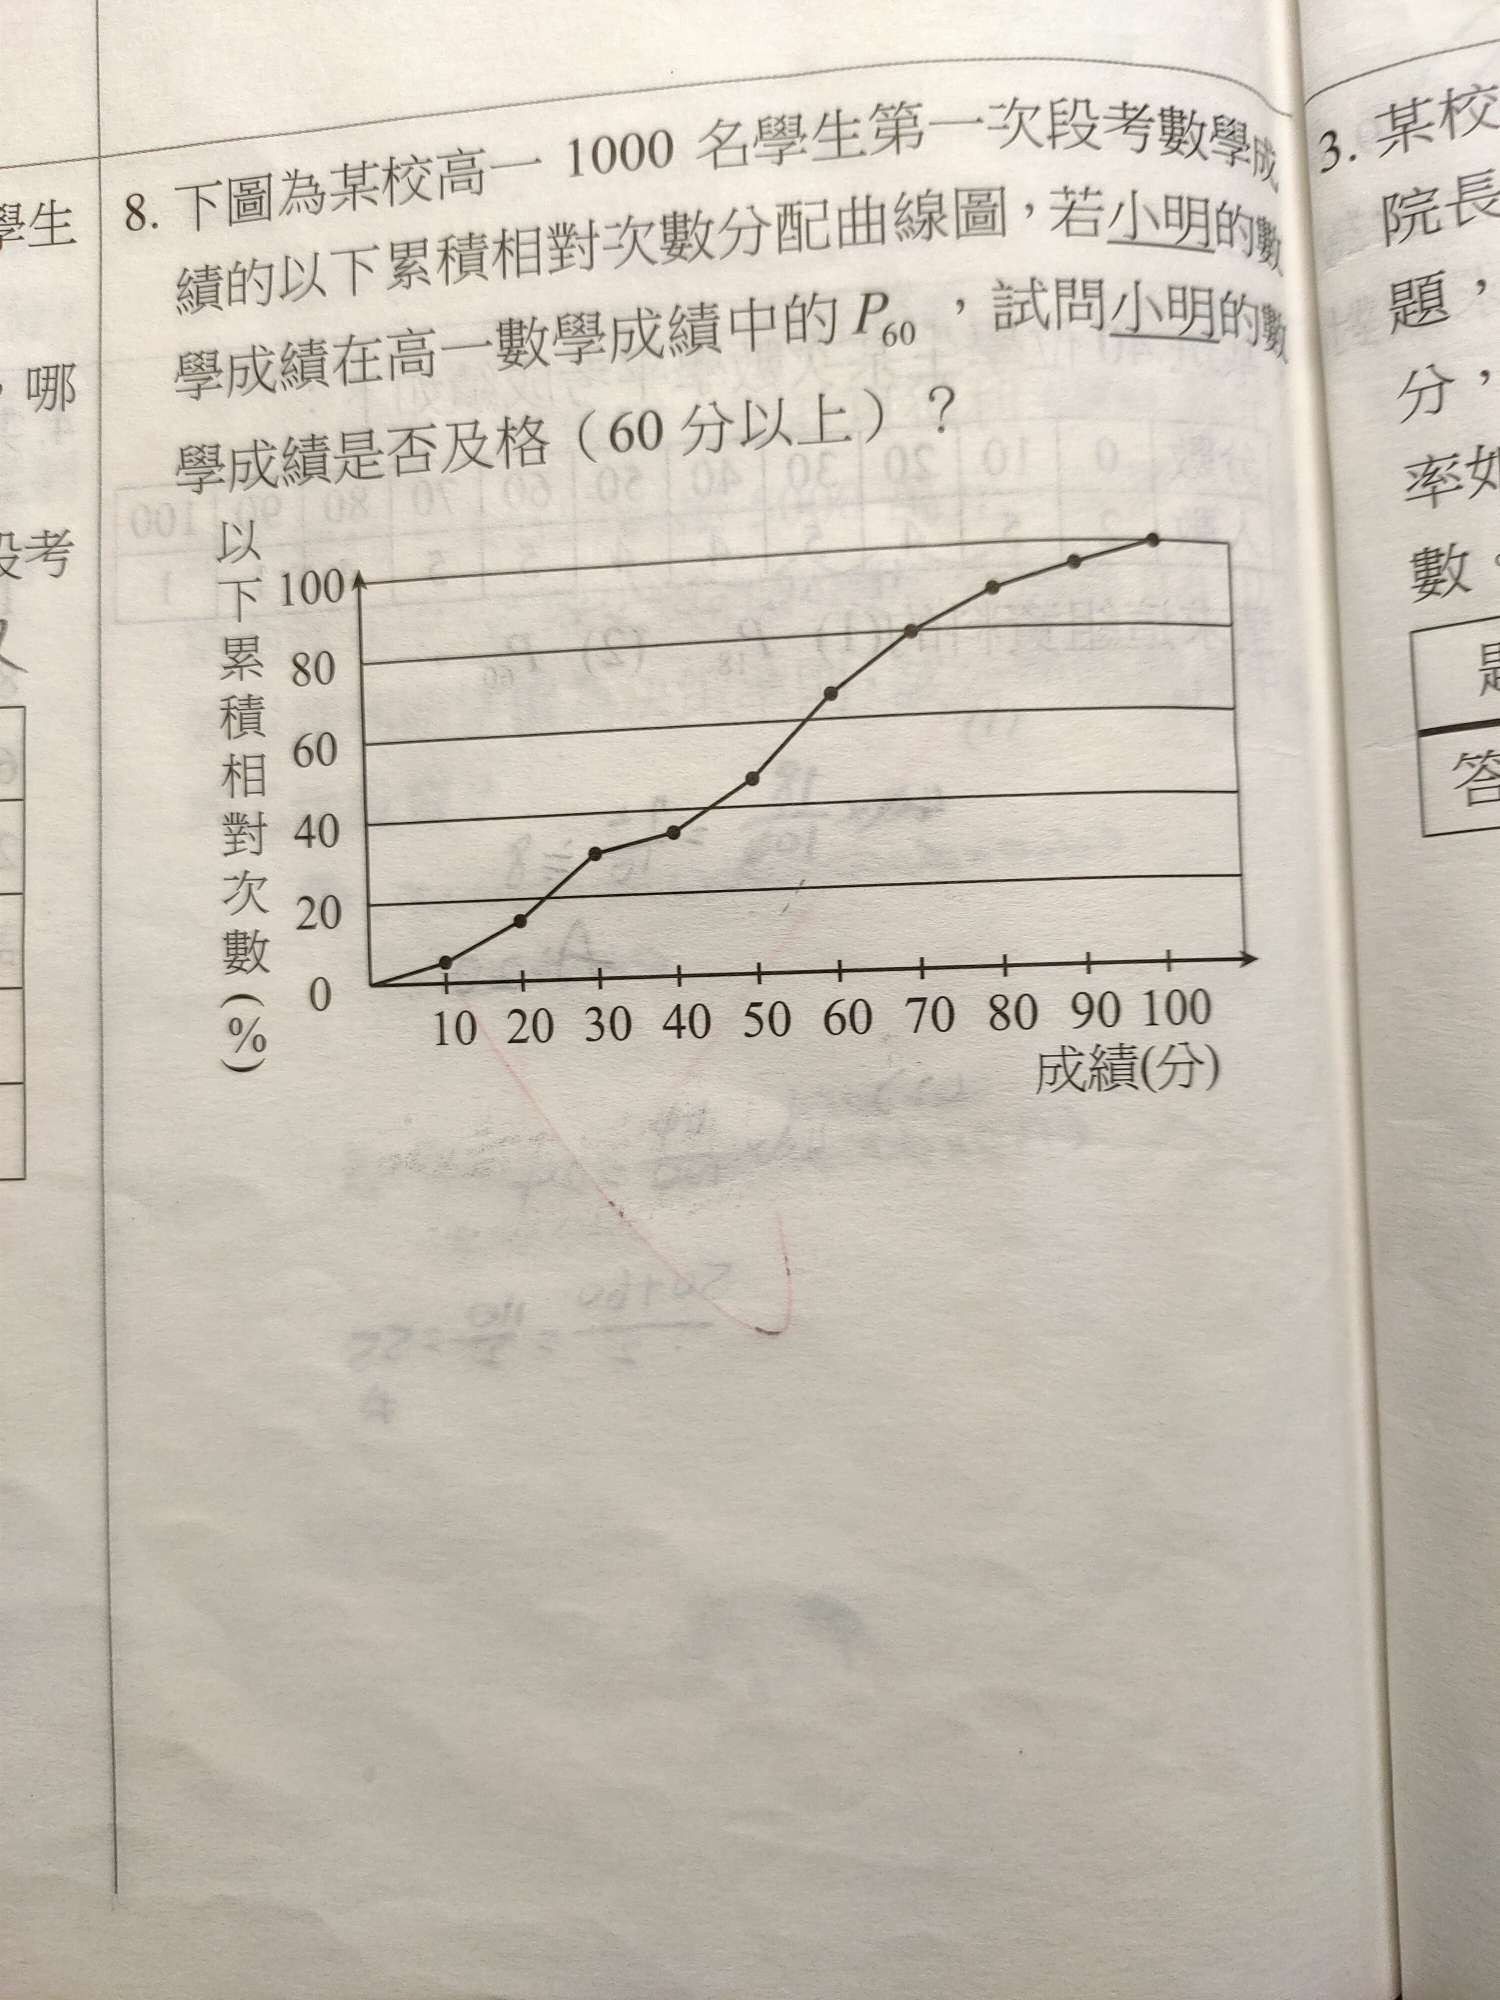 學生
，哪
段考
8. 下圖為某校高一 1000 名學生第一次段考數學成
績的以下累積相對次數分配曲線圖，若小明的數
學成績在高一數學成績中的 P60 ，試問小明的數
學成績是否及格（60 分以上）？
以下累積相對次數(%)
100
80
60
40
20
0
10 20 30 40 50 60 70 80 90 100
成績(分)
3. 某校
院長
題，
分，
率如
數。
題
答